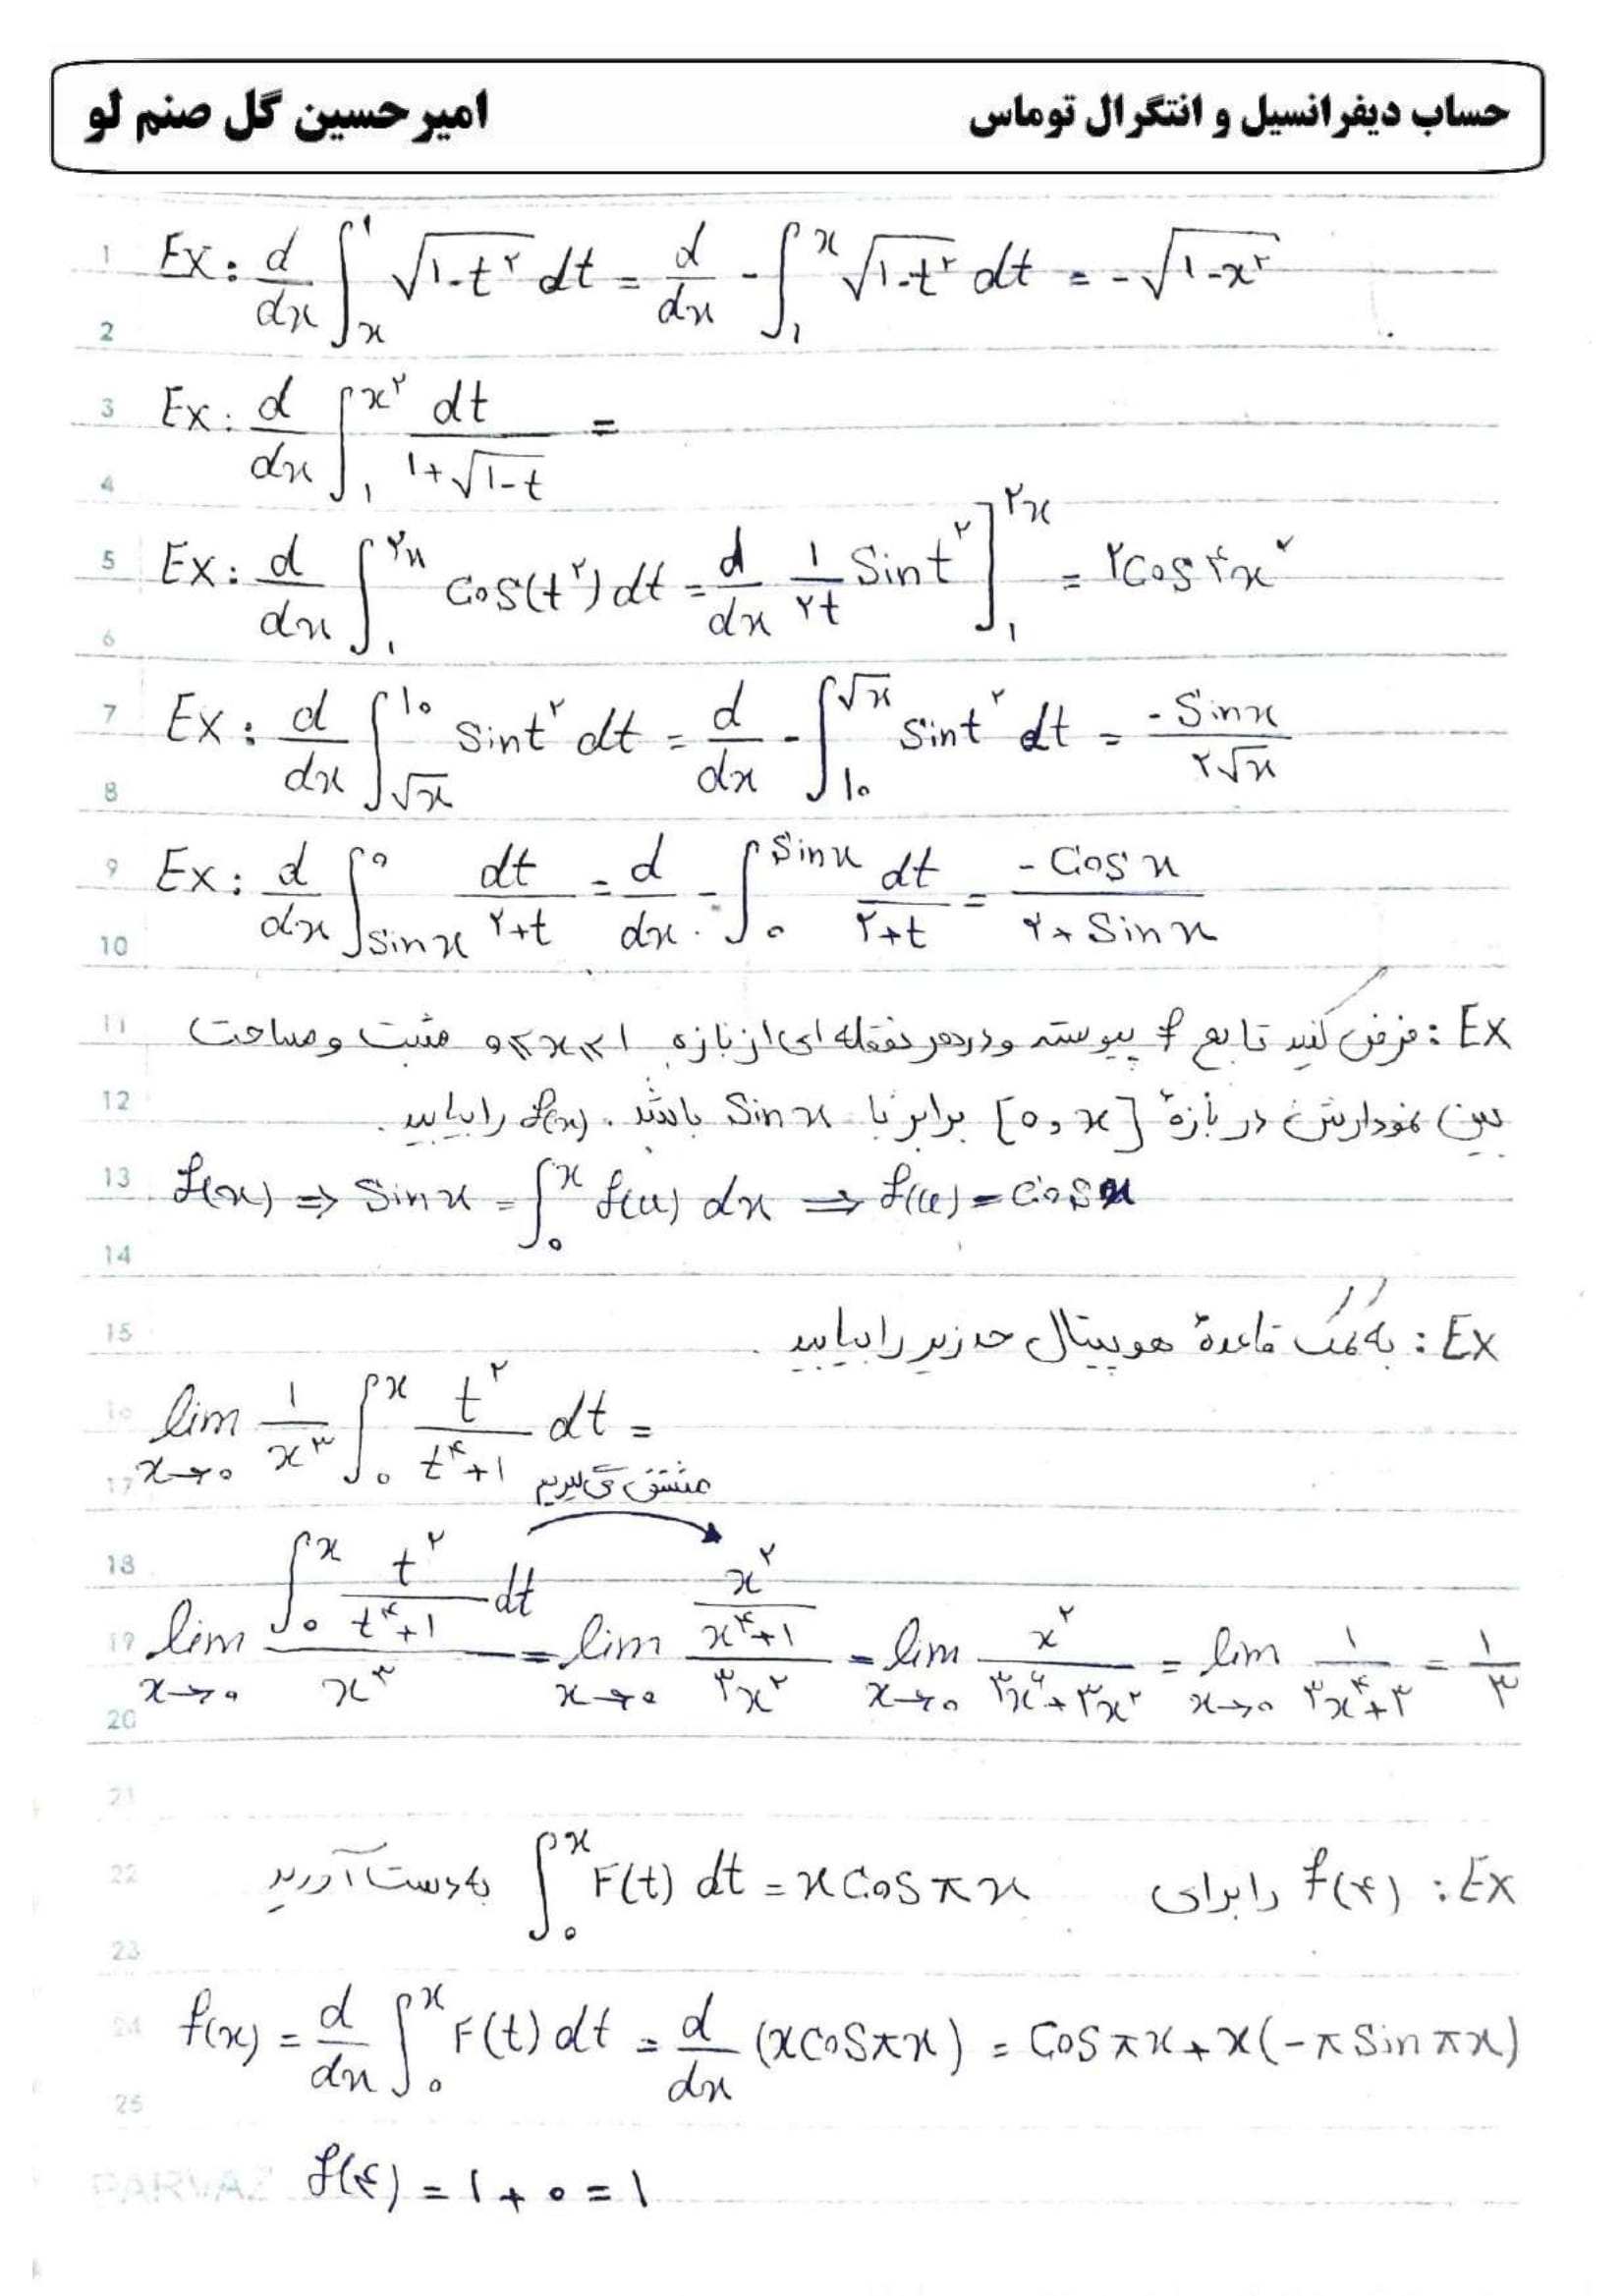 حساب دیفرانسیل و انتگرال توماس
امیرحسین گل صنم لو
1 Ex: d/dx ∫_x^۱ √(۱-t^۲) dt = d/dx -∫_۱^x √(۱-t^۲) dt = -√(۱-x^۲)
2
3 Ex: d/dx ∫_۱^{x^۲} dt/(۱+√(۱-t)) =
4
5 Ex: d/dx ∫_۱^{۲x} Cos(t^۲) dt = d/dx ۱/۲t Sint^۲ ]_۱^{۲x} = ۲Cos۴x^۲
6
7 Ex: d/dx ∫_{√x}^{۱۰} Sint^۲ dt = d/dx -∫_{۱۰}^{√x} Sint^۲ dt = -Sinx/۲√x
8
9 Ex: d/dx ∫_{Sinx}^۰ dt/(۲+t) = d/dx -∫_۰^{Sinx} dt/(۲+t) = -Cosx/(۲+Sinx)
10
11 Ex: فرض کنید تابع f پیوسته و در هر نقطه ای از بازه ۰≤x≤۱ مثبت و مساحت
12 بین نمودارش در بازهٔ [۰,x] برابر با Sinx باشد. f(x) را بیابید.
13 f(x) ⇒ Sinx = ∫_۰^x f(x) dx ⇒ f(x) = Cosx
14
15 Ex: به کمک قاعدهٔ هوپیتال حد زیر را بیابید.
16 lim_{x→۰} ۱/x^۳ ∫_۰^x t^۲/(t^۴+۱) dt =
17 مشتق می گیریم
18
19 lim_{x→۰} (∫_۰^x t^۲/(t^۴+۱) dt)/x^۳ = lim_{x→۰} (x^۲/(x^۴+۱))/۳x^۲ = lim_{x→۰} x^۲/(۳x^۶+۳x^۲) = lim_{x→۰} ۱/(۳x^۴+۳) = ۱/۳
20
21
22 Ex: f(۴) را برای ∫_۰^x F(t) dt = xCosπx به دست آورید
23
24 f(x) = d/dx ∫_۰^x F(t) dt = d/dx (xCosπx) = Cosπx + x(-πSinπx)
25
f(۴) = ۱ + ۰ = ۱
PARVAZ